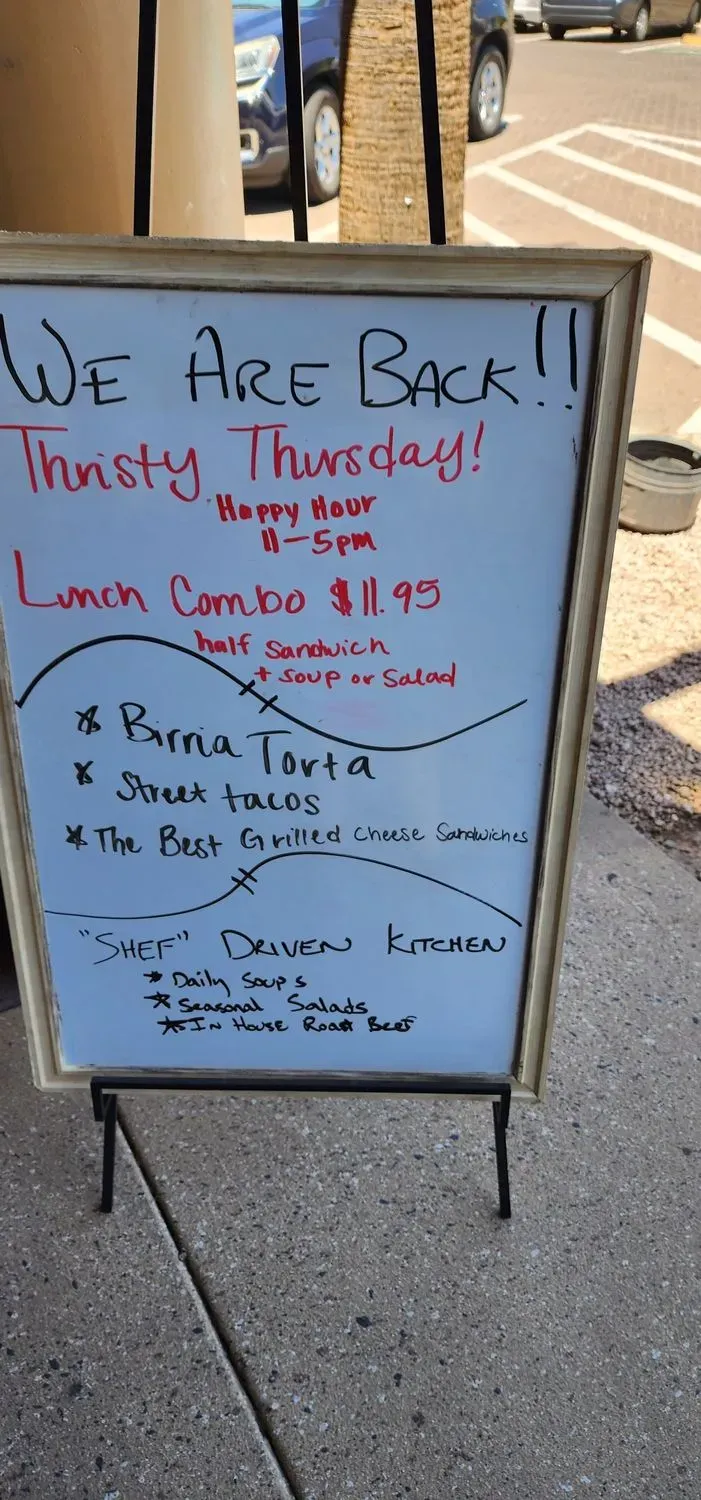 WE ARE BACK!!
Thristy Thursday!
Happy Hour
11-5pm
Lunch Combo $11.95
half Sandwich
+ Soup or Salad
* Birria Torta
* Street tacos
* The Best Grilled Cheese Sandwiches
"SHEF" DRIVEN KITCHEN
* Daily Soups
* Seasonal Salads
* IN HOUSE ROAST BEEF